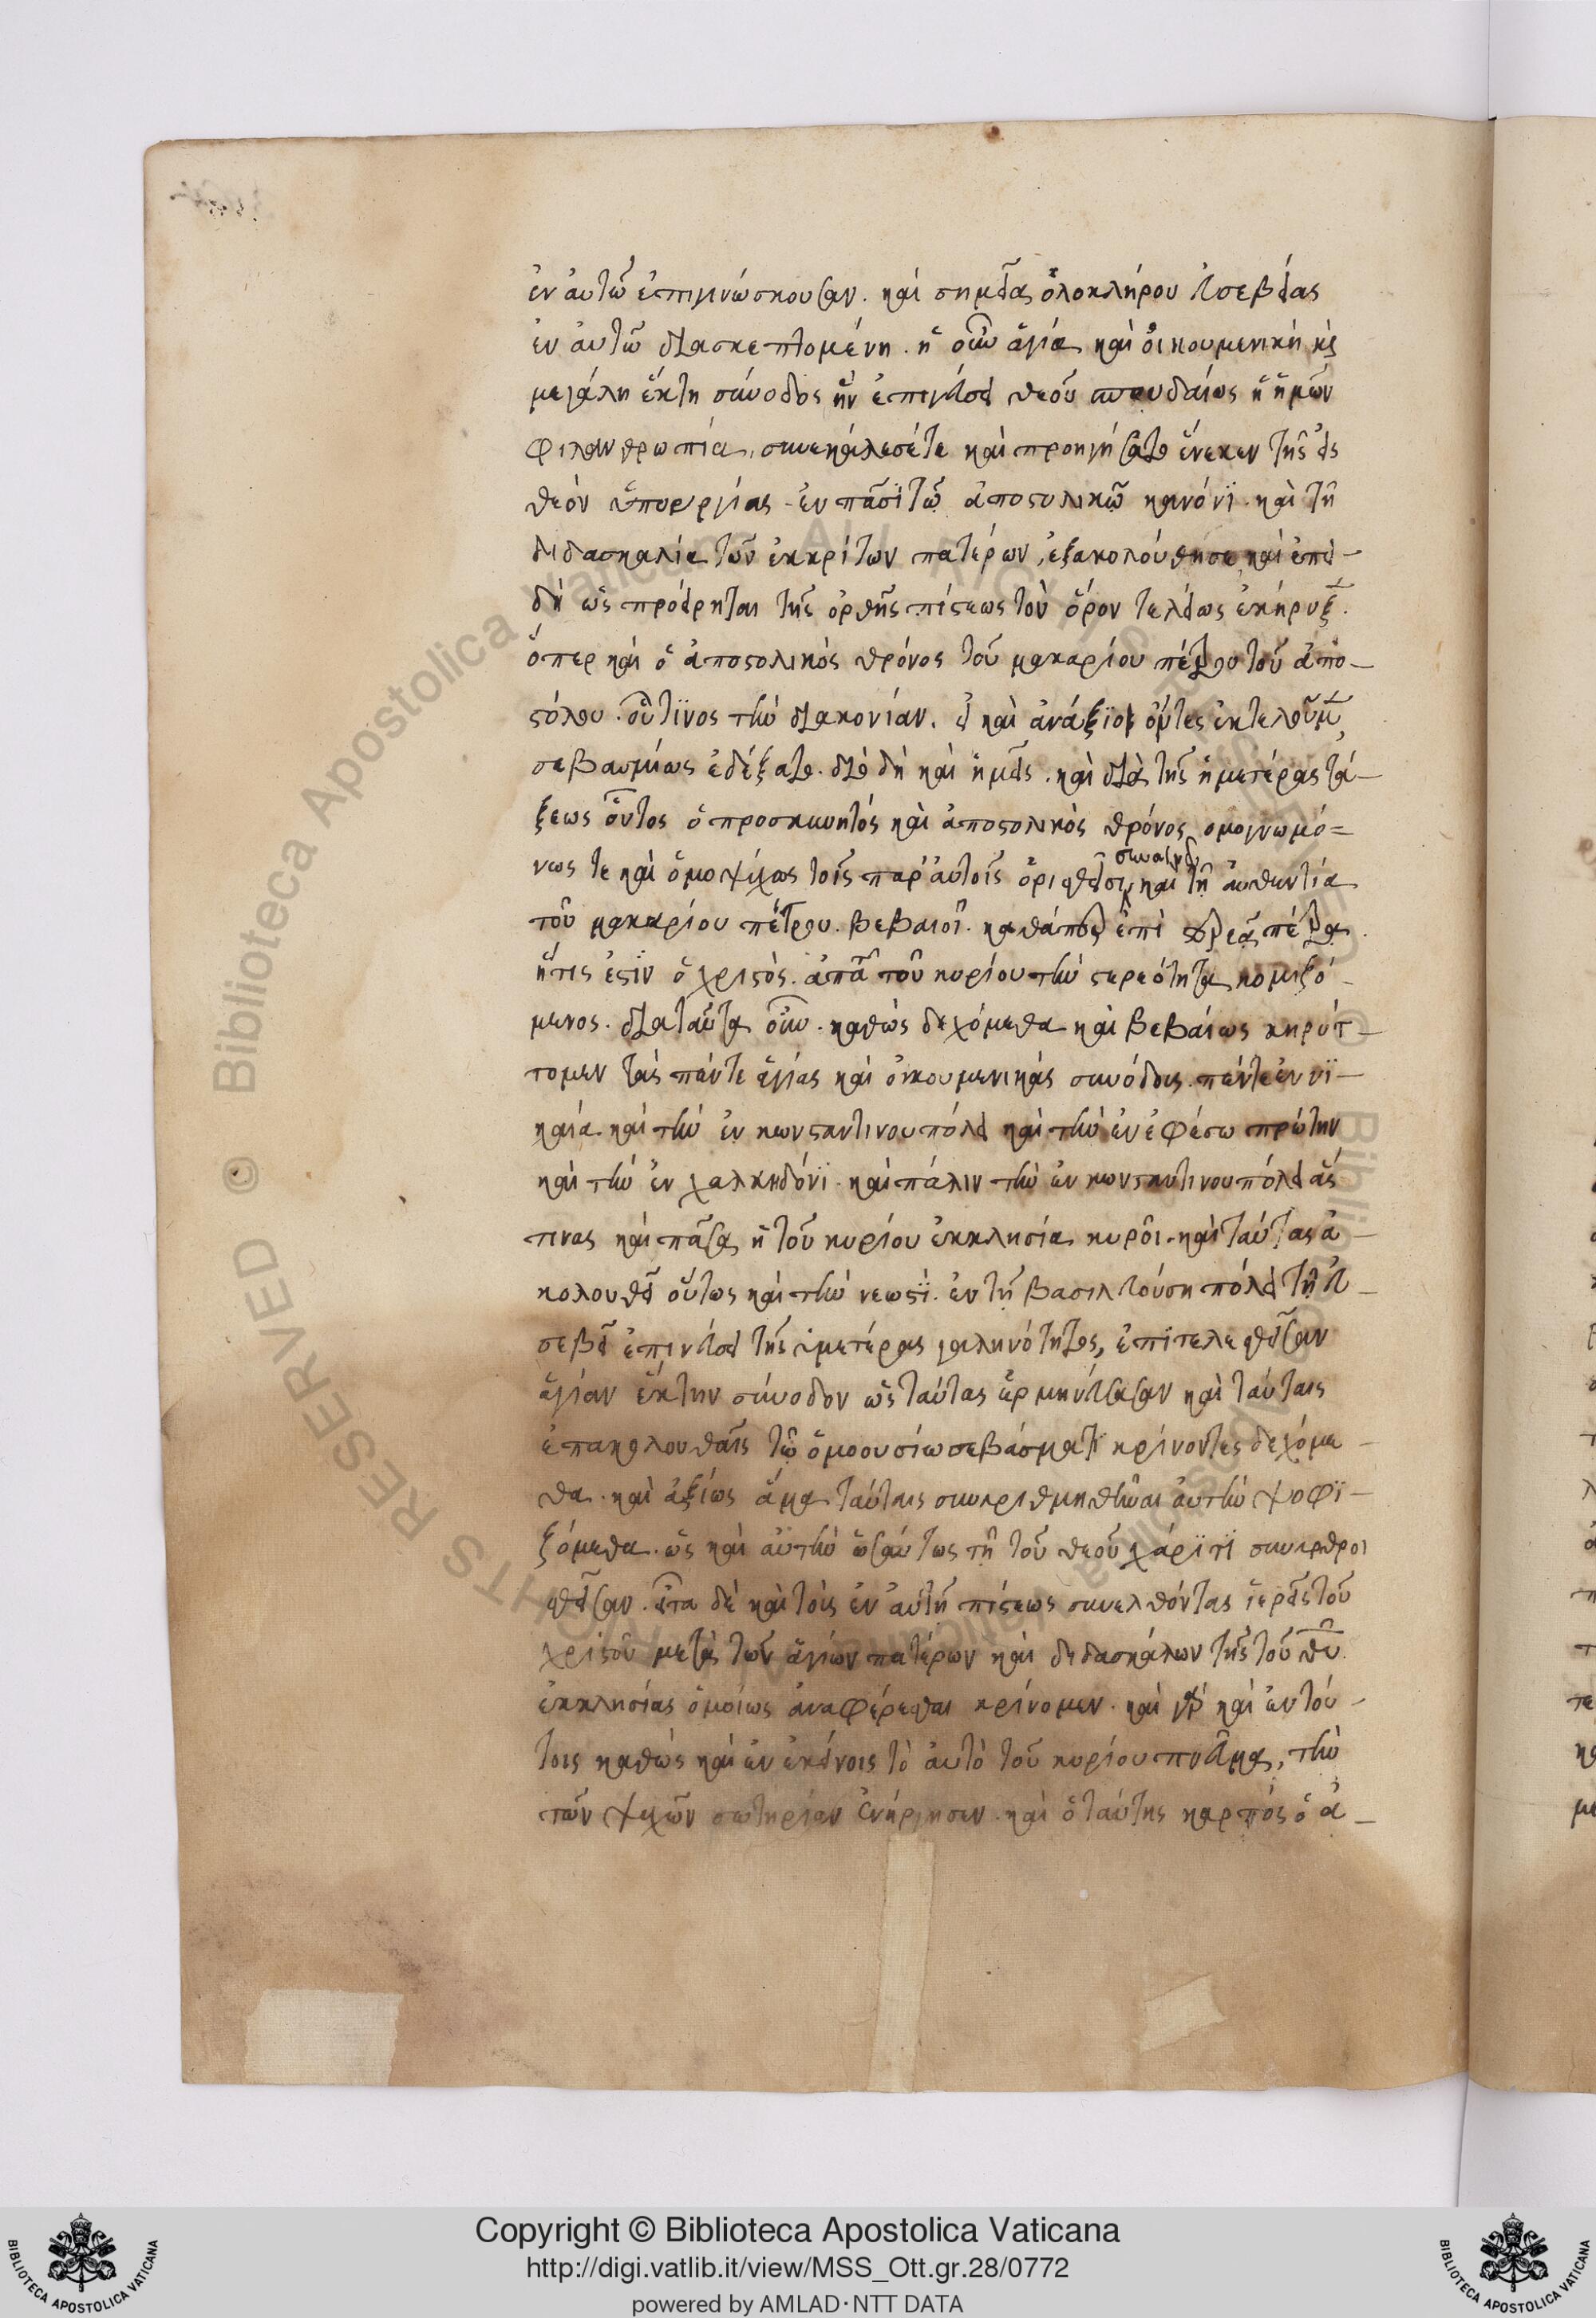 ἐν αὐτῶ ἐπιγινώσκουσαν. καὶ σημεῖα ὁλοκλήρου εὐσεβείας
ἐν αὐτῶ διασκεπτομένη. ἡ οὖν ἁγία καὶ οἰκουμενικὴ κὶ
μεγάλη ἕκτη σύνοδος ἣν ἐπινεύσει θεοῦ σπουδαίως ἡ ἡμῶν
φιλανθρωπία, συνεκάλεσέτε καὶ προηγήσατο ἕνεκεν τῆς εἰς
θεὸν ὑπουργίας ἐν πᾶσϊ τῶ ἀποστολικῶ κανόνϊ. καὶ τῆ
διδασκαλία τῶν ἐκκρίτων πατέρων, ἐξακολούθησε καὶ ἐπει-
δὴ ὡς προείρηται τῆς ὀρθῆς πίστεως τὸν ὅρον τελείως ἐκήρυξε.
ὅπερ καὶ ὁ ἀποστολικὸς θρόνος τοῦ μακαρίου πέτρου τοῦ ἀπο-
στόλου. οὗτϊνος τὴν διακονίαν. εἰ καὶ ἀνάξϊοι ὄντες ἐκτελοῦμεν
σεβασμίως ἐδέξατο. διὸ δὴ καὶ ἡμεῖς. καὶ διὰ τῆς ἡμετέρας τά-
ξεως οὗτος ὁ προσκυνητὸς καὶ ἀποστολικὸς θρόνος ὁμογνωμό=
νως τε καὶ ὁμοψύχως τοῖς παρ' αὐτοῖς ὁρισθεῖσι καὶ τῆ αὐθεντία
τοῦ μακαρίου πέτρου. βεβαιοῖ. καθάπερ ἐπὶ στερεᾶ πέτρα.
ἥτις ἐστϊν ὁ χριστὸς. ἀπ' αὐτοῦ κυρίου τὴν στερεότητα κομιζό-
μενος. διὰ ταῦτα οὖν. καθὼς δεχόμεθα καὶ βεβαίως κηρύτ-
τομεν τὰς πέντε ἁγίας καὶ οἰκουμενικὰς συνόδους. πέντε ἐν νϊ-
καία καὶ τὴν ἐν κωνσταντινουπόλει καὶ τὴν ἐν ἐφέσω πρώτην
καὶ τὴν ἐν χαλκηδόνϊ. καὶ πάλιν τὴν ἐν κωνσταντινουπόλει ἅς
τινας καὶ πᾶσα ἡ τοῦ κυρίου ἐκκλησία κυροῖ. καὶ ταύτας ἀ-
κολουθεῖ οὕτως καὶ τὴν νεωστϊ. ἐν τῆ βασιλευούση πόλει τῆ εὐ-
σεβεῖ ἐπινεύσει τῆς ἡμετέρας γαληνότητος, ἐπϊτελεσθεῖσαν
ἁγίαν ἕκτην σύνοδον ὡς ταύτας ἑρμηνεύσασαν καὶ ταύταις
ἐπακολουθεῖν τῶ ὁμοουσίω σεβάσματϊ κρίνοντες δεχόμε-
θα. καὶ ἀξίως ἅμα ταύταις συναριθμηθῆναι αὐτὴν ψοφϊ-
ζόμεθα. ὡς καὶ αὐτὴν ὡσαύτως τῆ τοῦ θεοῦ χάρϊτϊ συναθροι
σθεῖσαν. εἶτα δὲ καὶ τοὺς ἐν αὐτῆ πίστεως συνελθόντας ἱερεῖς τοῦ
χριστοῦ μετὰ τῶν ἁγίων πατέρων καὶ διδασκάλων τῆς τοῦ θυ.
ἐκκλησίας ὁμοίως ἀναφέρεσθαι κρίνομεν. καὶ γὰρ καὶ ἐν τού-
τοις καθὼς καὶ ἐν ἐκείνοις τὸ αὐτὸ τοῦ κυρίου πνεῦμα, τὴν
τῶν ψυχῶν σωτηρίαν ἐνήργησεν. καὶ ὁ ταύτης καρπὸς ὁ ἀ-
© Biblioteca Apostolica Vaticana ALL RIGHTS RESERVED
Copyright © Biblioteca Apostolica Vaticana
http://digi.vatlib.it/view/MSS_Ott.gr.28/0772
powered by AMLAD·NTT DATA
BIBLIOTECA APOSTOLICA VATICANA
BIBLIOTECA APOSTOLICA VATICANA